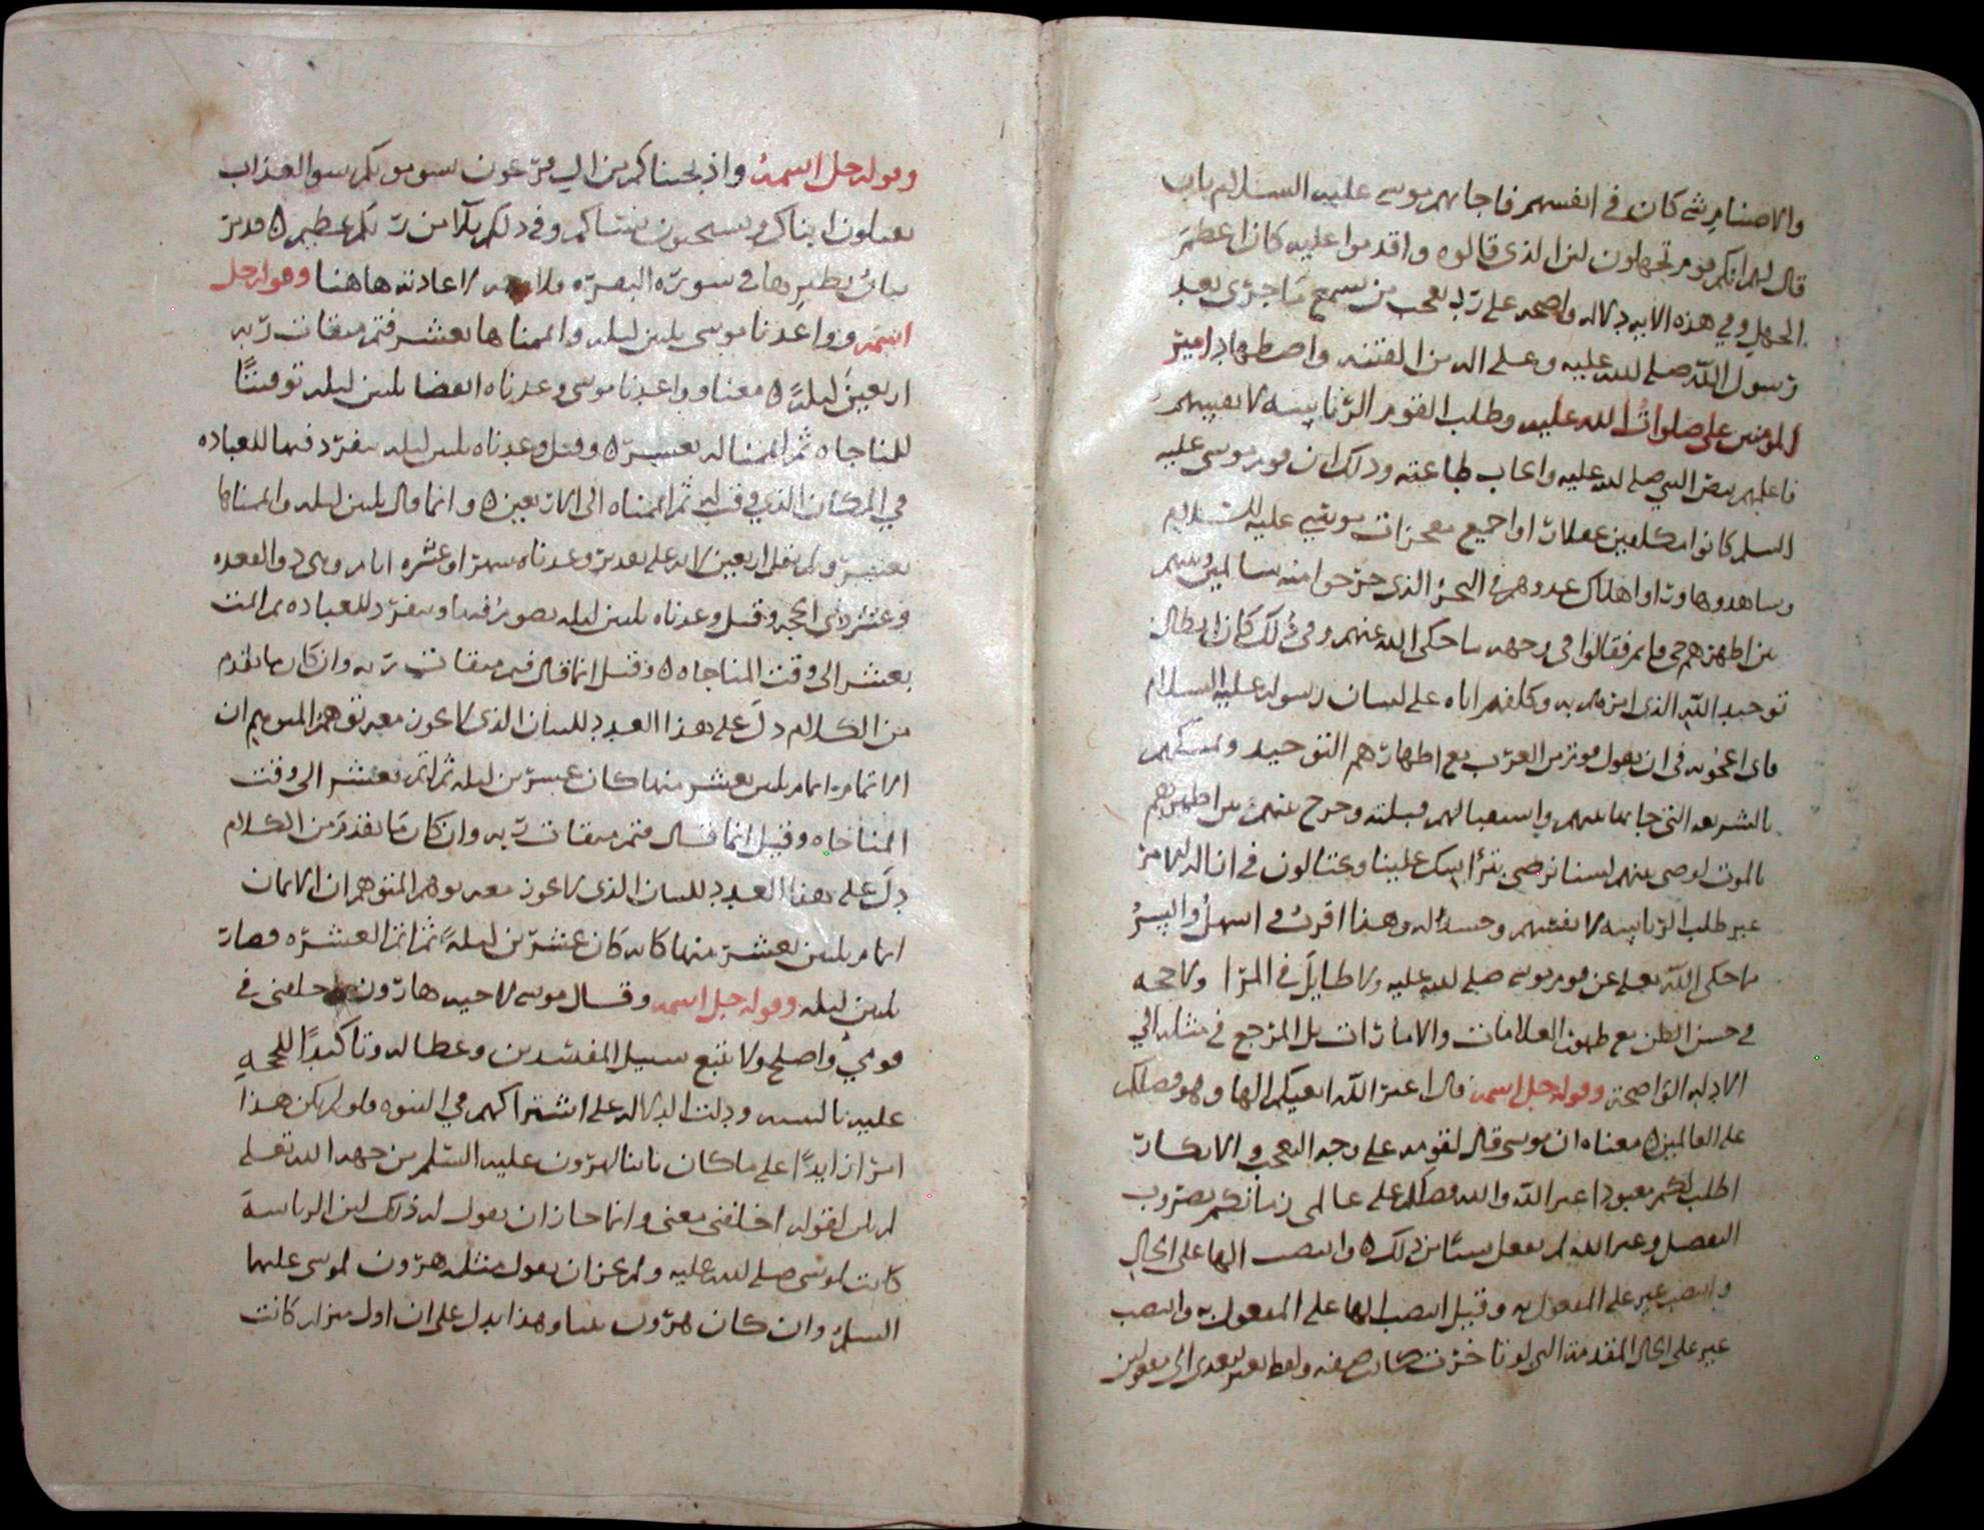 والاصنام شى كان في انفسهم فاجابهم موسى عليه السلام بان
قال لهم انكم قوم تجهلون لان الذى قالوه واقدموا عليه كان اعظم
الجهل وفي هذه الايه دلاله واضحه على رد تعجب من يسمع ما جرى بعد
رسول الله صلى الله عليه وعلى اله من الفتنه واضطهاد امير
المومنين على صلوات الله عليه وطلب القوم الرئاسه لانفسهم
عليه واعاب طاعته وذلك ان قوم موسى عليه
السلم كانوا مكلفين عقلاء راوا جميع معجزات موسى عليه السلام
وشاهدوها وراوا اهلاك عدوهم في البحر الذى خرجوا منه سالمين
بين اظهرهم حى قايم فقالوا في وجهه ما حكى الله عنهم وفي ذلك كان ابطال
توحيد الله الذى امرهم به وكلفهم اياه على لسان رسوله عليه السلام
فاى اعجوبه في ان يقول قوم من العرب مع اظهارهم التوحيد وتمسكهم
بالشريعه التى جاهم بها واستقبالهم قبلته وخرج عنهم من اظهرهم
بالموت لوصى منهم لسنا نرضى بتراسك علينا ويحتالون في ازاله الامر
عنه طلب الرئاسه لانفسهم وحسدا له وهذا اقرب واسهل وايسر
ما حكى الله تعالى عن قوم موسى صلى الله عليه ولا طايل في المرا ولا حجه
في حسن الظن مع ظهور العلامات والامارات بل المرجع في مثله الى
الادله الواضحه وقوله جل اسمه قال اغير الله ابغيكم الها وهو فضلكم
على العالمين ٥ معناه ان موسى قال لقومه على وجه التعجب والانكار
اطلب لكم معبودا غير الله والله فضلكم على عالمى زمانكم بضروب
التفضل وغير الله لم يفعل شيئا من ذلك ٥ وانتصب الها على الحال
وانتصب غير على المفعول به وقيل انتصب الها على المفعول به وانتصب
غير على الحال المقدمه التى لو تاخرت كانت صفه ولفظ يتعدى الى مفعولين
وقوله جل اسمه واذ نجيناكم من ال فرعون يسومونكم سو العذاب
يقتلون ابناكم ويستحيون نساكم وفي ذلكم بلا من ربكم عظيم ٥ قد مر
بيان نظيرها في سورة البقره فلا وجه لاعادته هاهنا وقوله جل
اسمه وواعدنا موسى ثلثين ليله واتممناها بعشر فتم ميقات ربه
اربعين ليلة ٥ معنا وواعدنا موسى وعدناه انقضا ثلثين ليله توقيتا
للمناجاه ثم اتممنا له بعشر ٥ وقيل وعدناه ثلثين ليله يتفرد فيها للعباده
في المكان الذي وقت له ثم اتممناه الى الاربعين ٥ وانما قال ثلثين ليله واتممناها
بعشر ولم يقل اربعين لانه على تقدير وعدناه شهرا وعشره ايام وهى ذو القعده
وعشر ذى الحجه وقيل وعدناه ثلثين ليله يصوم فيها ويتفرد للعباده ثم اتمت
بعشر الى وقت المناجاه ٥ وقيل انما قال فتم ميقات ربه وان كان ما تقدم
من الكلام دل على هذا العدد للبيان الذى لا يجوز معه توهم المتوهم ان
الاتمام اتمام ثلثين بعشر منها كان عشرين ليله ثم اتم بعشر الى وقت
المناجاه وقيل انما قال فتم ميقات ربه وان كان ما تقدم من الكلام
دل على هذا العدد للبيان الذى لا يجوز معه توهم المتوهم ان الاتمام
اتمام ثلثين بعشر منها كانه كان عشرين ليلة ثم اتم العشره فصارت
ثلثين ليله وقوله جل اسمه وقال موسى لاخيه هارون اخلفنى في
قومي واصلح ولا تتبع سبيل المفسدين وعظا له وتاكيدا للحجه
عليه بالبينه ودلت الدلاله على اشتراكهم في النبوه فلو لم يكن هذا
امرا زايدا على ما كان ثابتا لهرون عليه السلم من جهه الله تعالى
لم يكن لقوله اخلفنى معنى وانما جاز ان يقول له ذلك لان الرياسة
كانت لموسى صلى الله عليه ولم يجز ان يقول مثله هرون لموسى عليهما
السلم وان كان هرون نبيا وهذا يدل على ان اول منزله كانت